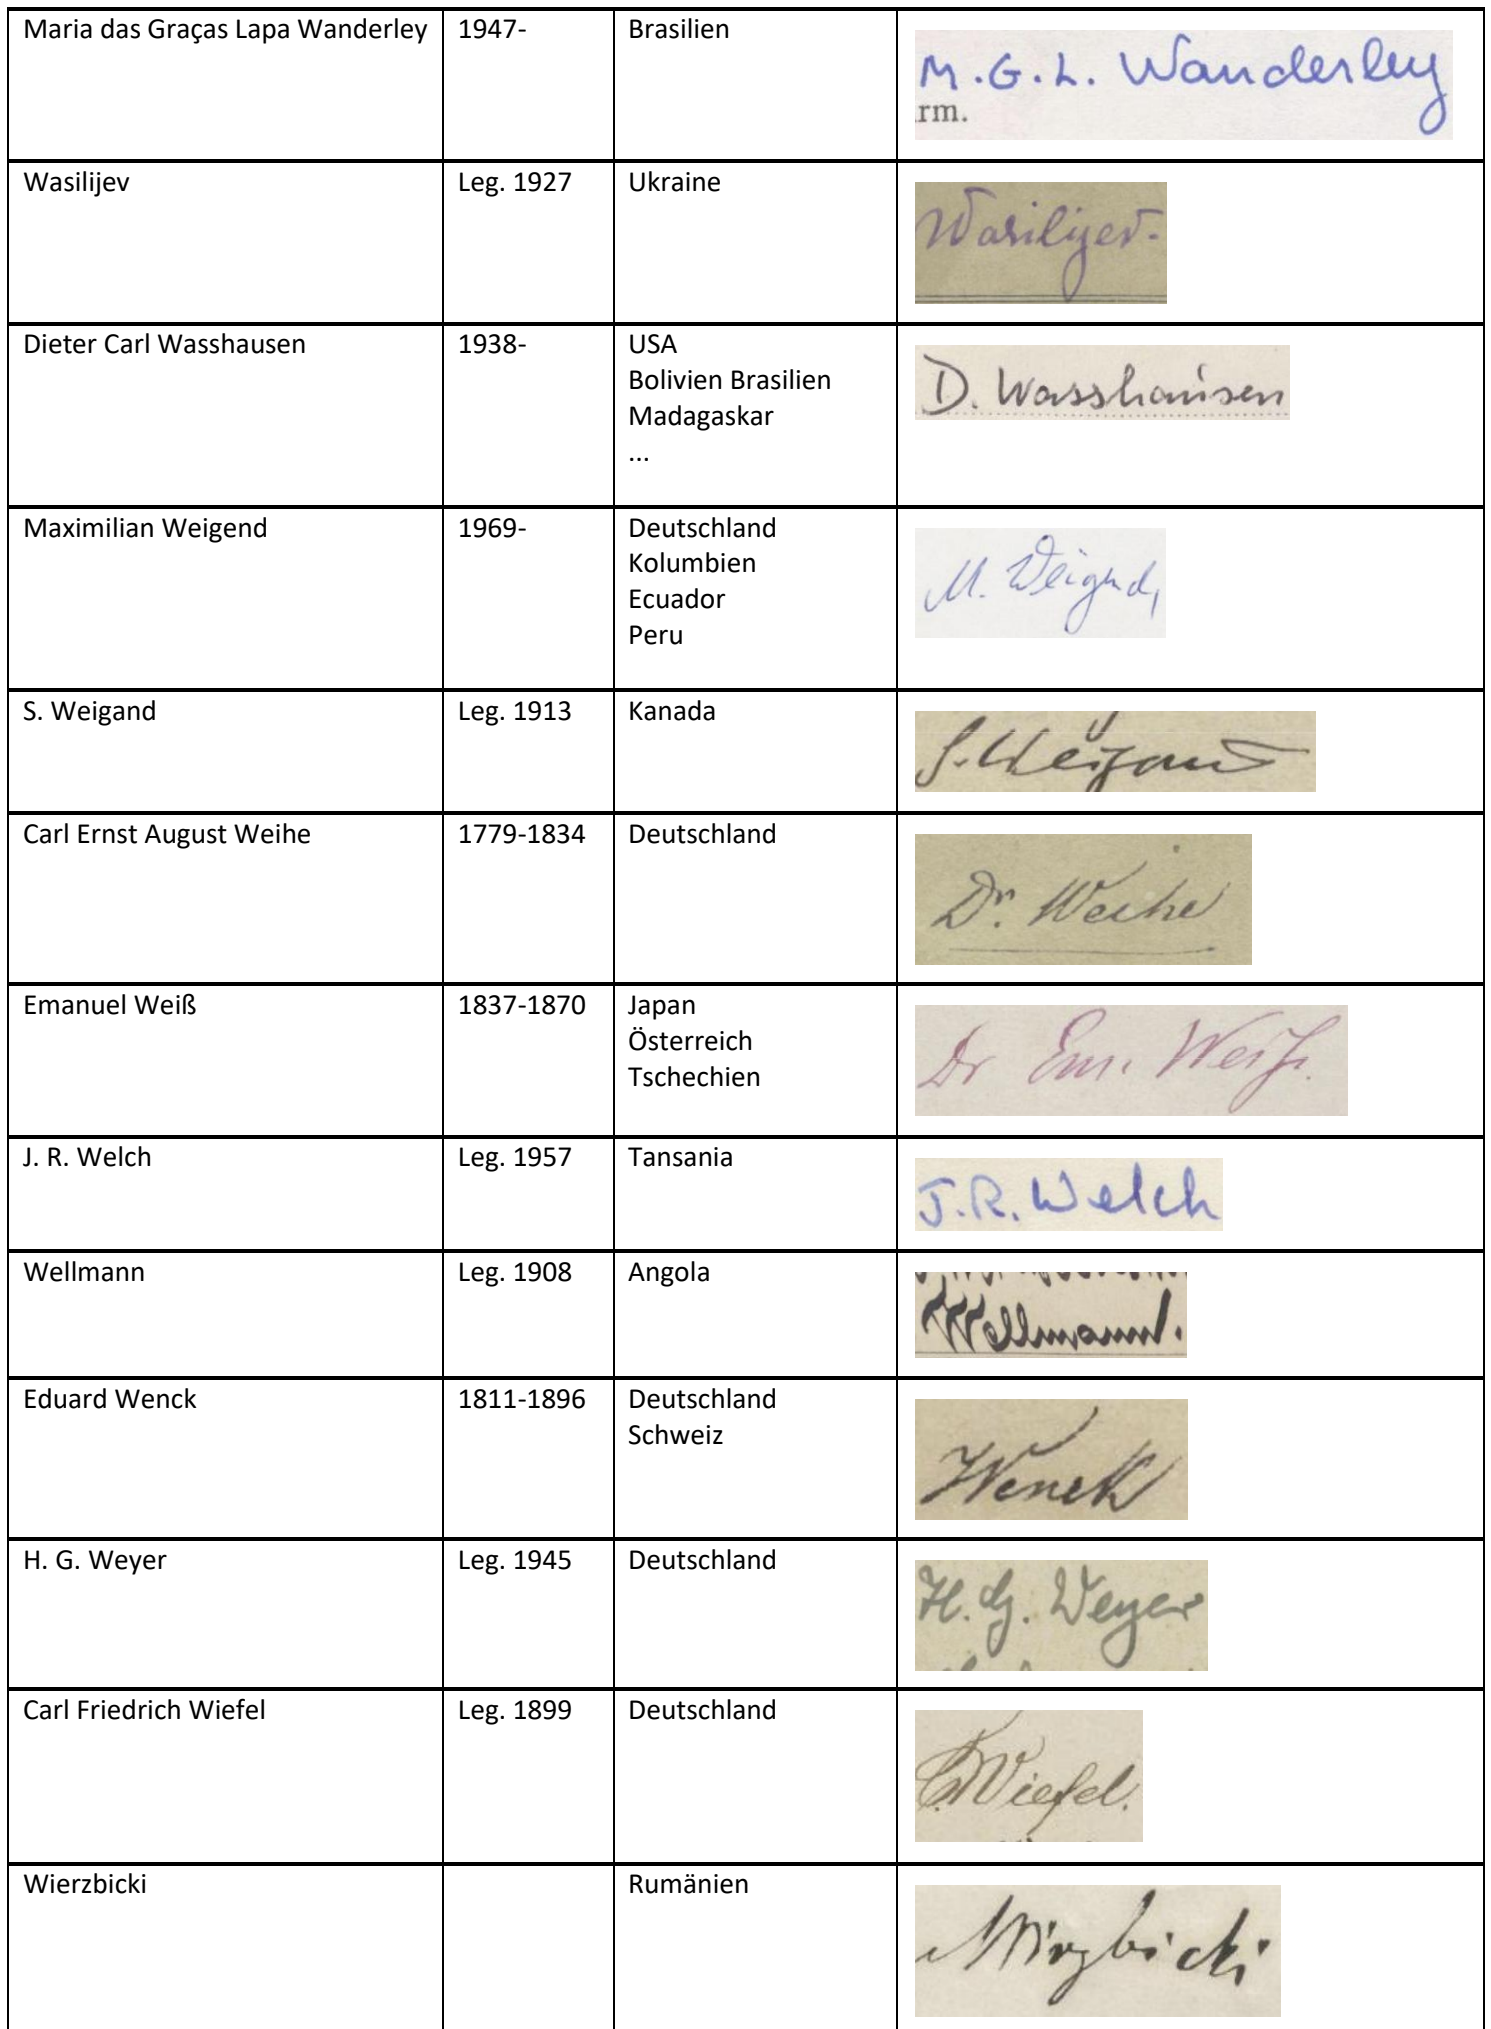 Maria das Graças Lapa Wanderley 1947- Brasilien M.G.L. Wanderley
rm.
Wasilijev Leg. 1927 Ukraine Wasilijev.
Dieter Carl Wasshausen 1938- USA D. Wasshausen
Bolivien Brasilien
Madagaskar
...
Maximilian Weigend 1969- Deutschland M. Weigend,
Kolumbien
Ecuador
Peru
S. Weigand Leg. 1913 Kanada S. Weigand
Carl Ernst August Weihe 1779-1834 Deutschland Dr. Weihe
Emanuel Weiß 1837-1870 Japan Dr Em. Weiß.
Österreich
Tschechien
J. R. Welch Leg. 1957 Tansania J.R. Welch
Wellmann Leg. 1908 Angola Wellmann.
Eduard Wenck 1811-1896 Deutschland Wenck
Schweiz
H. G. Weyer Leg. 1945 Deutschland H. G. Weyer
Carl Friedrich Wiefel Leg. 1899 Deutschland C. Wiefel.
Wierzbicki Rumänien Wirzbicki